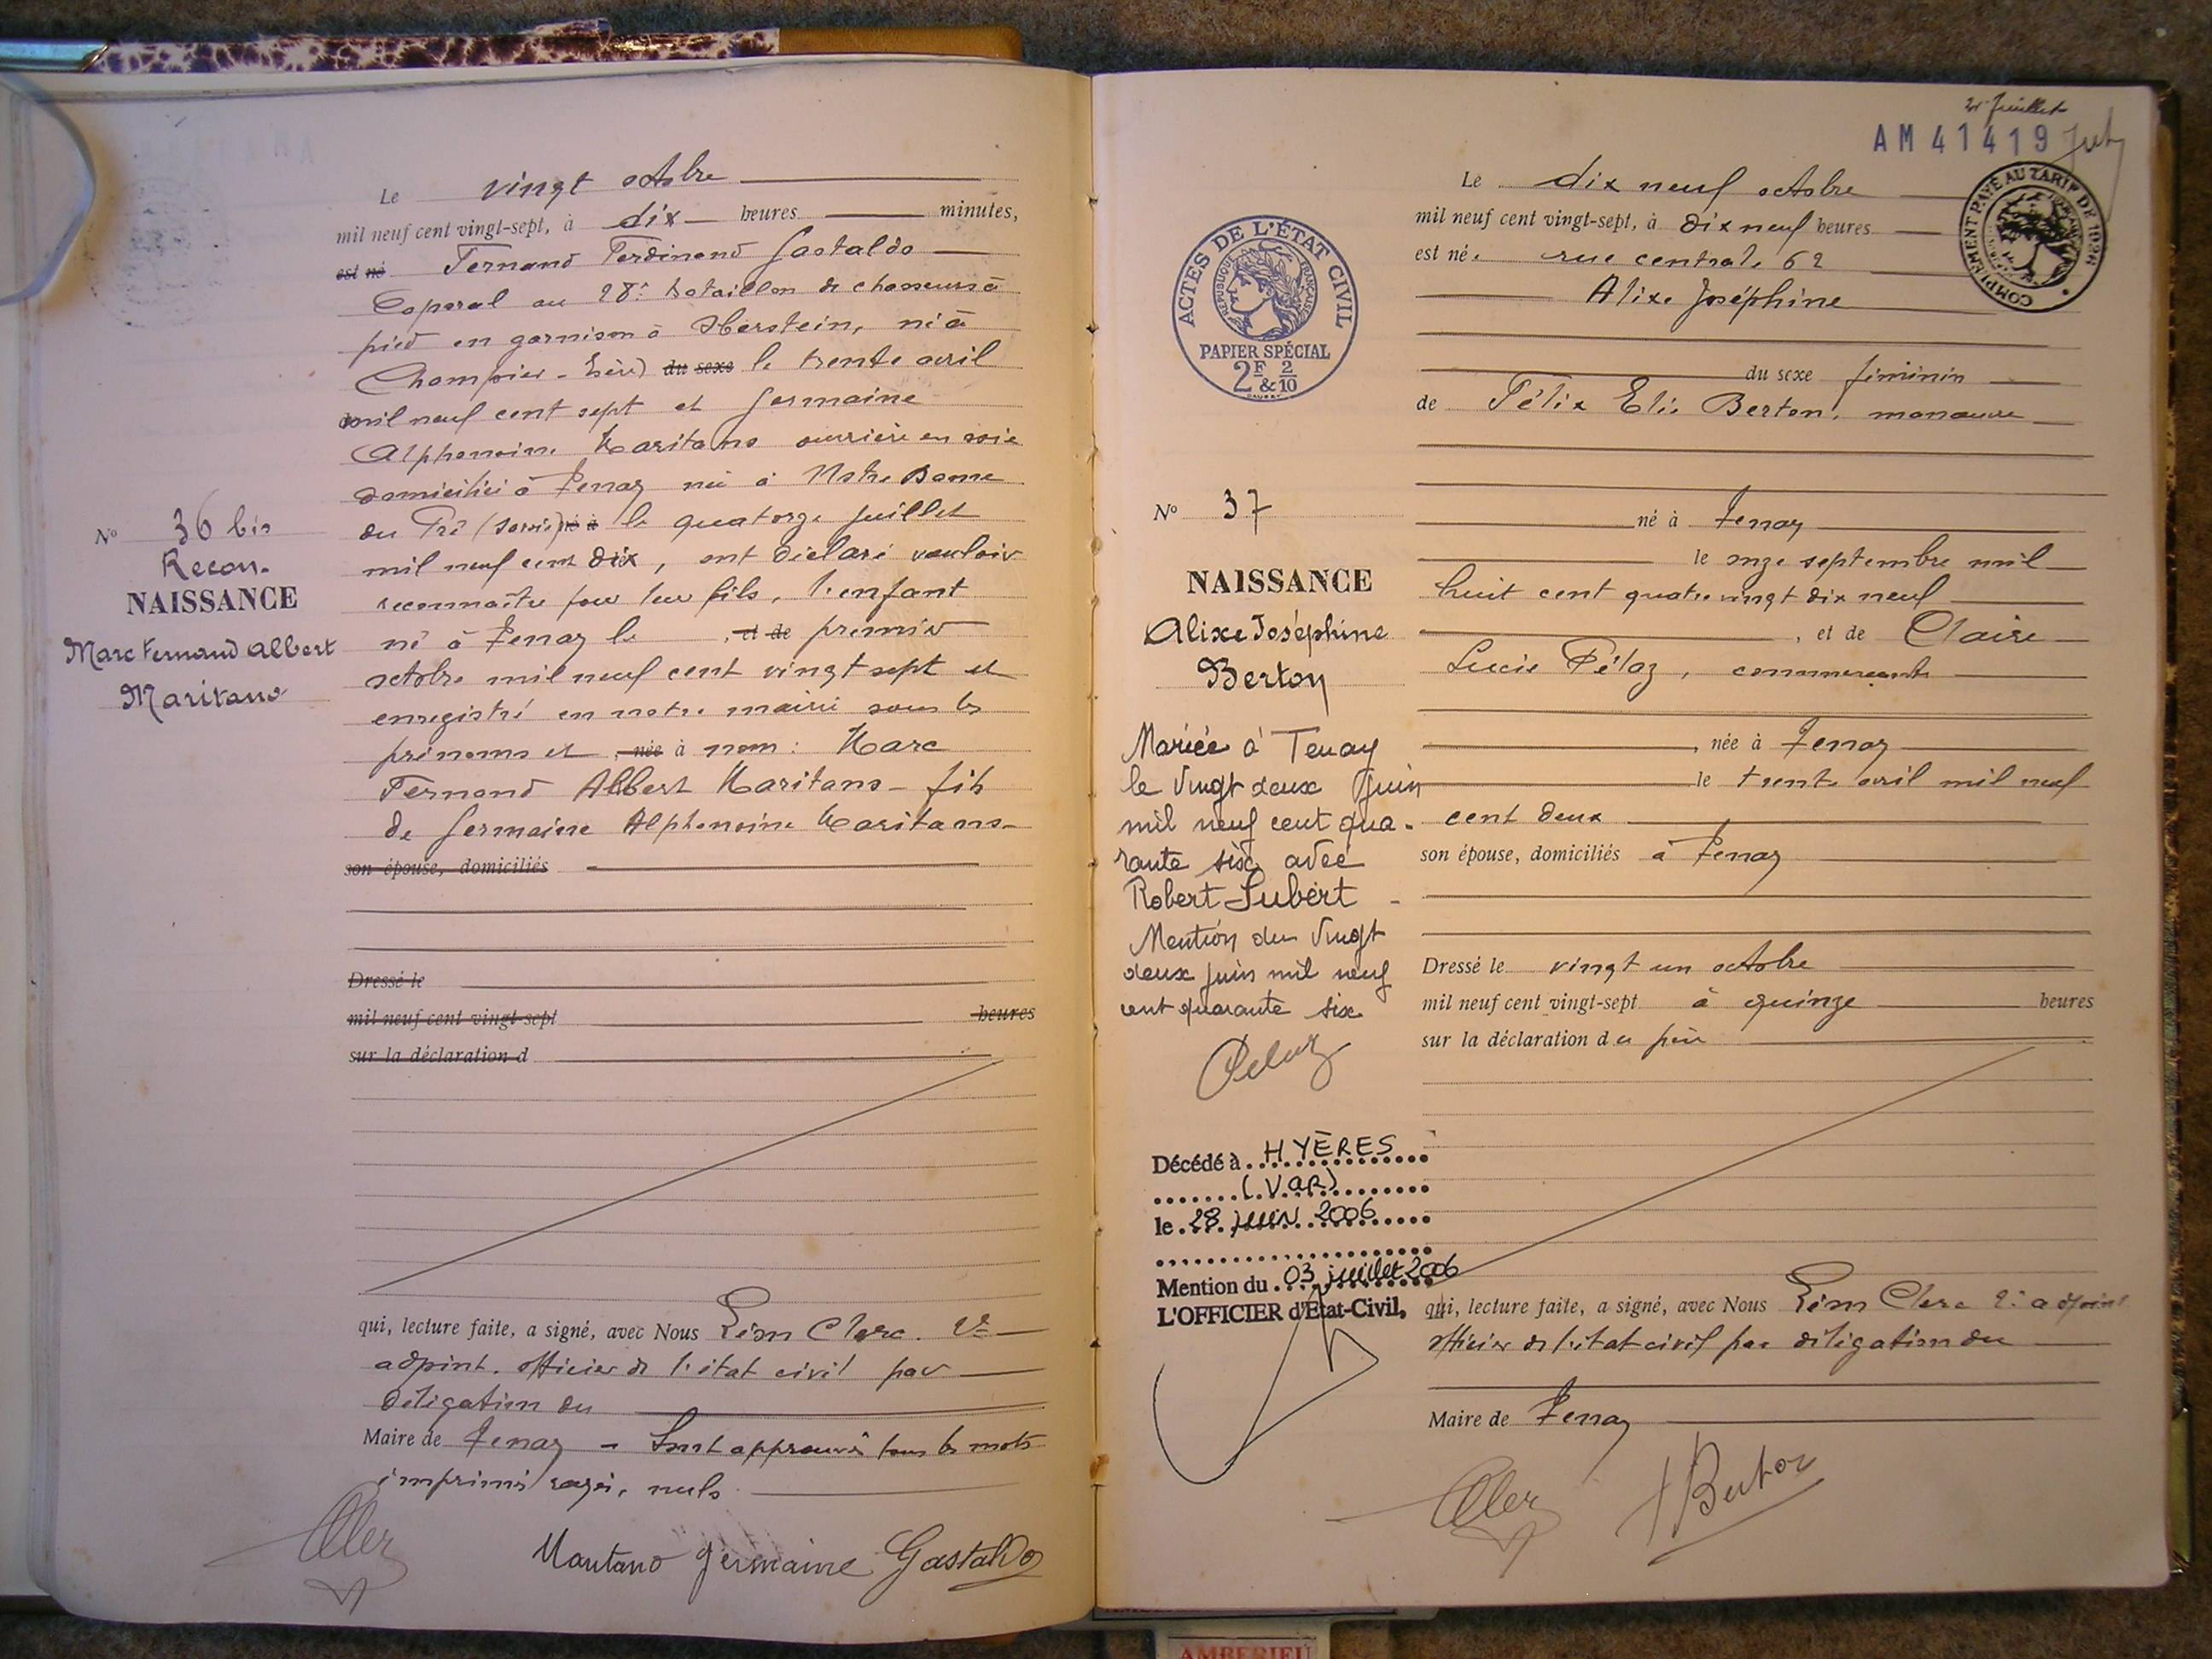 Le vingt octobre
mil neuf cent vingt-sept, à dix heures minutes,
est né Fernand Ferdinand Gastaldo
Caporal au 28e bataillon de chasseurs à
pied en garnison à Oberstein, né à
Champier - Isère) du sexe le trente avril
mil neuf cent sept et Germaine
Alphonsine Maritano ouvrière en soie
domiciliée à Tenay née à Notre Dame
du Pré (Savoie) né à le quatorze juillet
mil neuf cent dix, ont déclaré vouloir
reconnaître pour leur fils, l'enfant
né à Tenay le , et de premier
octobre mil neuf cent vingt sept et
enregistré en notre mairie sous les
prénoms et , née à nom : Marc
Fernand Albert Maritano - fils
de Germaine Alphonsine Maritano -
son épouse, domiciliés
Dressé le
mil neuf cent vingt-sept heures
sur la déclaration d
qui, lecture faite, a signé, avec Nous Léon Clerc. 2e
adjoint. officier de l'état civil par
délégation du
Maire de Tenay - Sont approuvés tous les mots
imprimés rayés, nuls
Maritano Germaine Gastaldo
No 36 bis
Recon-
NAISSANCE
Marc Fernand Albert
Maritano
21 Juillet
AM 41419
COMPLEMENT PAYÉ AU TARIF DE 1926
ACTES DE L'ÉTAT CIVIL
RÉPUBLIQUE FRANÇAISE
PAPIER SPÉCIAL
2F & 2/10
No 37
NAISSANCE
Alixe Joséphine
Berton
Mariée à Tenay
le Vingt deux Juin
mil neuf cent qua-
rante six avec
Robert Lubert -
Mention du Vingt
deux juin mil neuf
cent quarante six
Décédé à HYÈRES
(Var)
le 28 juin 2006
Mention du 03 juillet 2006
L'OFFICIER d'Etat-Civil,
Le dix neuf octobre
mil neuf cent vingt-sept, à dix neuf heures
est née rue centrale 62
Alixe Joséphine
du sexe féminin
de Félix Elie Berton, manœuvre
né à Tenay
le onze septembre mil
huit cent quatre vingt dix neuf
, et de Claire
Lucie Péloz, commerçante
, née à Tenay
le trente avril mil neuf
cent deux
son épouse, domiciliés à Tenay
Dressé le vingt un octobre
mil neuf cent vingt-sept à quinze heures
sur la déclaration du père
qui, lecture faite, a signé, avec Nous Léon Clerc 2e adjoint
officier de l'état civil par délégation du
Maire de Tenay
Clerc Berton
AMBERIEU